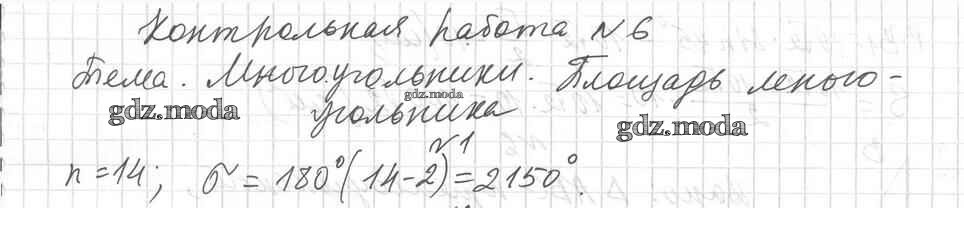 Контрольная работа №6
Тема. Многоугольники. Площадь много-
угольника
gdz.moda
gdz.moda
gdz.moda
№1
n = 14; σ = 180°(14-2) = 2150°.